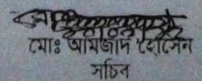 মোঃ আমজাদ হোসেন
সচিব